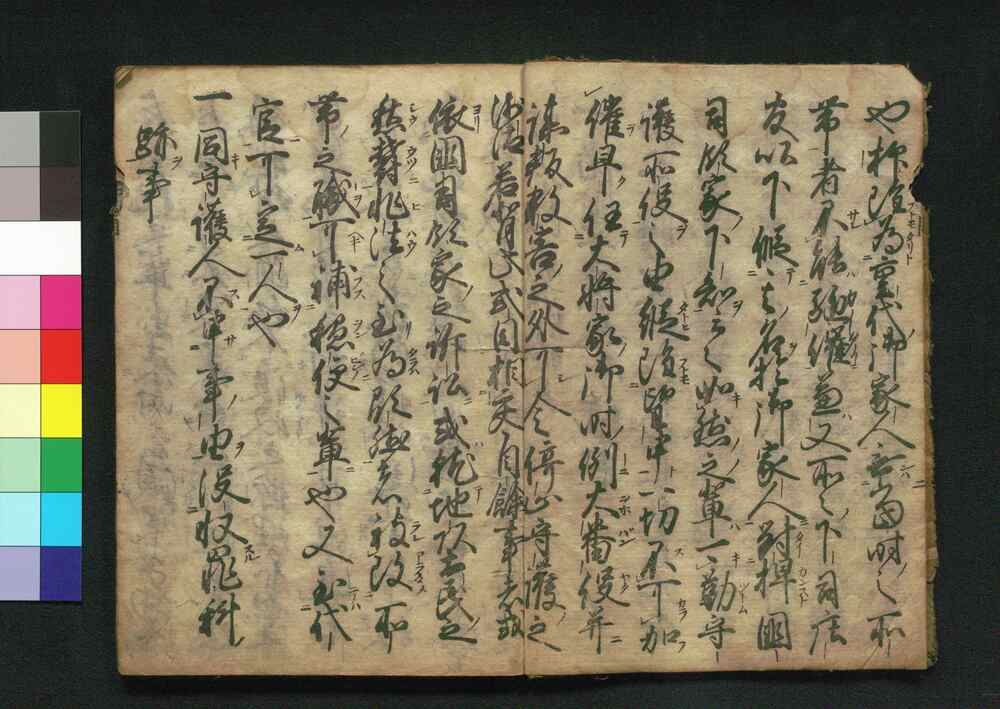 也抑雖為重代御家人無當時之所
帯者不能駈催兼又所々下司庄
官以下假其名於御家人對捍國
司領家下知云々如然之輩可勤守
護所役之由縦雖望申一切不可加
催早任大将家御時例大番役并
謀叛殺害之外可令停止守護之
沙汰若背此式目相交自餘事者或
依國司領家之訴訟或就地頭土民之
愁欝非法之至為顕然者被改所
帯之職可補穏便之輩也又至代
官可定一人也
一同守護人不申事由没収罪科
跡事